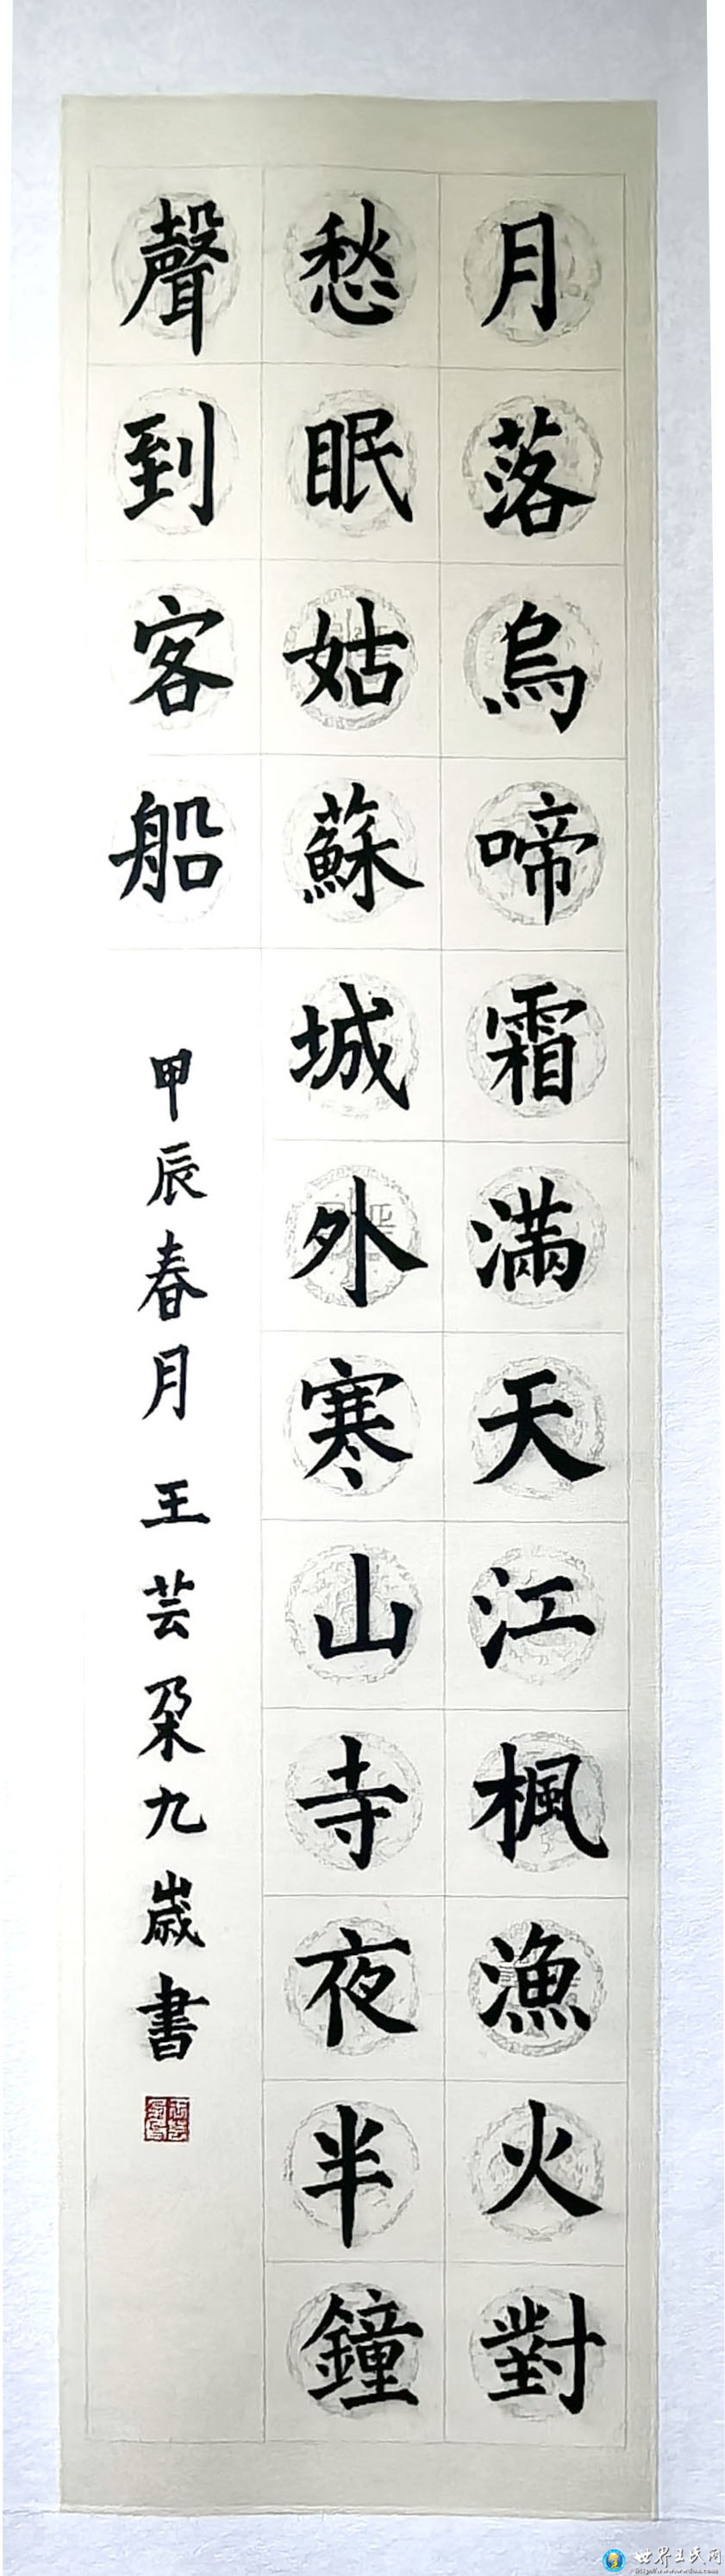 月落烏啼霜滿天江楓漁火對
愁眠姑蘇城外寒山寺夜半鐘
聲到客船
甲辰春月 王芸朶九歲書
世界王氏网